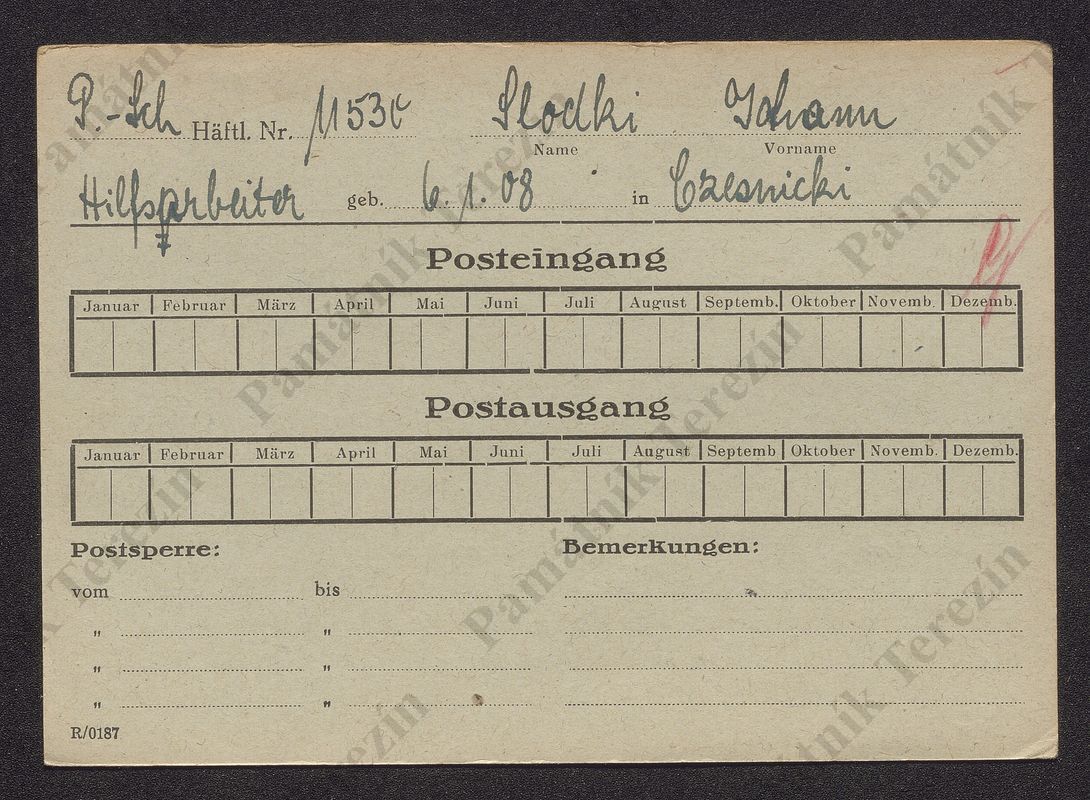 P.-Sch Häftl. Nr. Slodki Johann
Name Vorname
Hilfsarbeiter geb. 6.1.08 in Czesnicki
Posteingang
Januar Februar März April Mai Juni Juli August Septemb. Oktober Novemb. Dezemb.
Postausgang
Januar Februar März April Mai Juni Juli August Septemb Oktober Novemb. Dezemb.
Postsperre: Bemerkungen:
vom bis
" "
" "
" "
R/0187
Památník Terezín